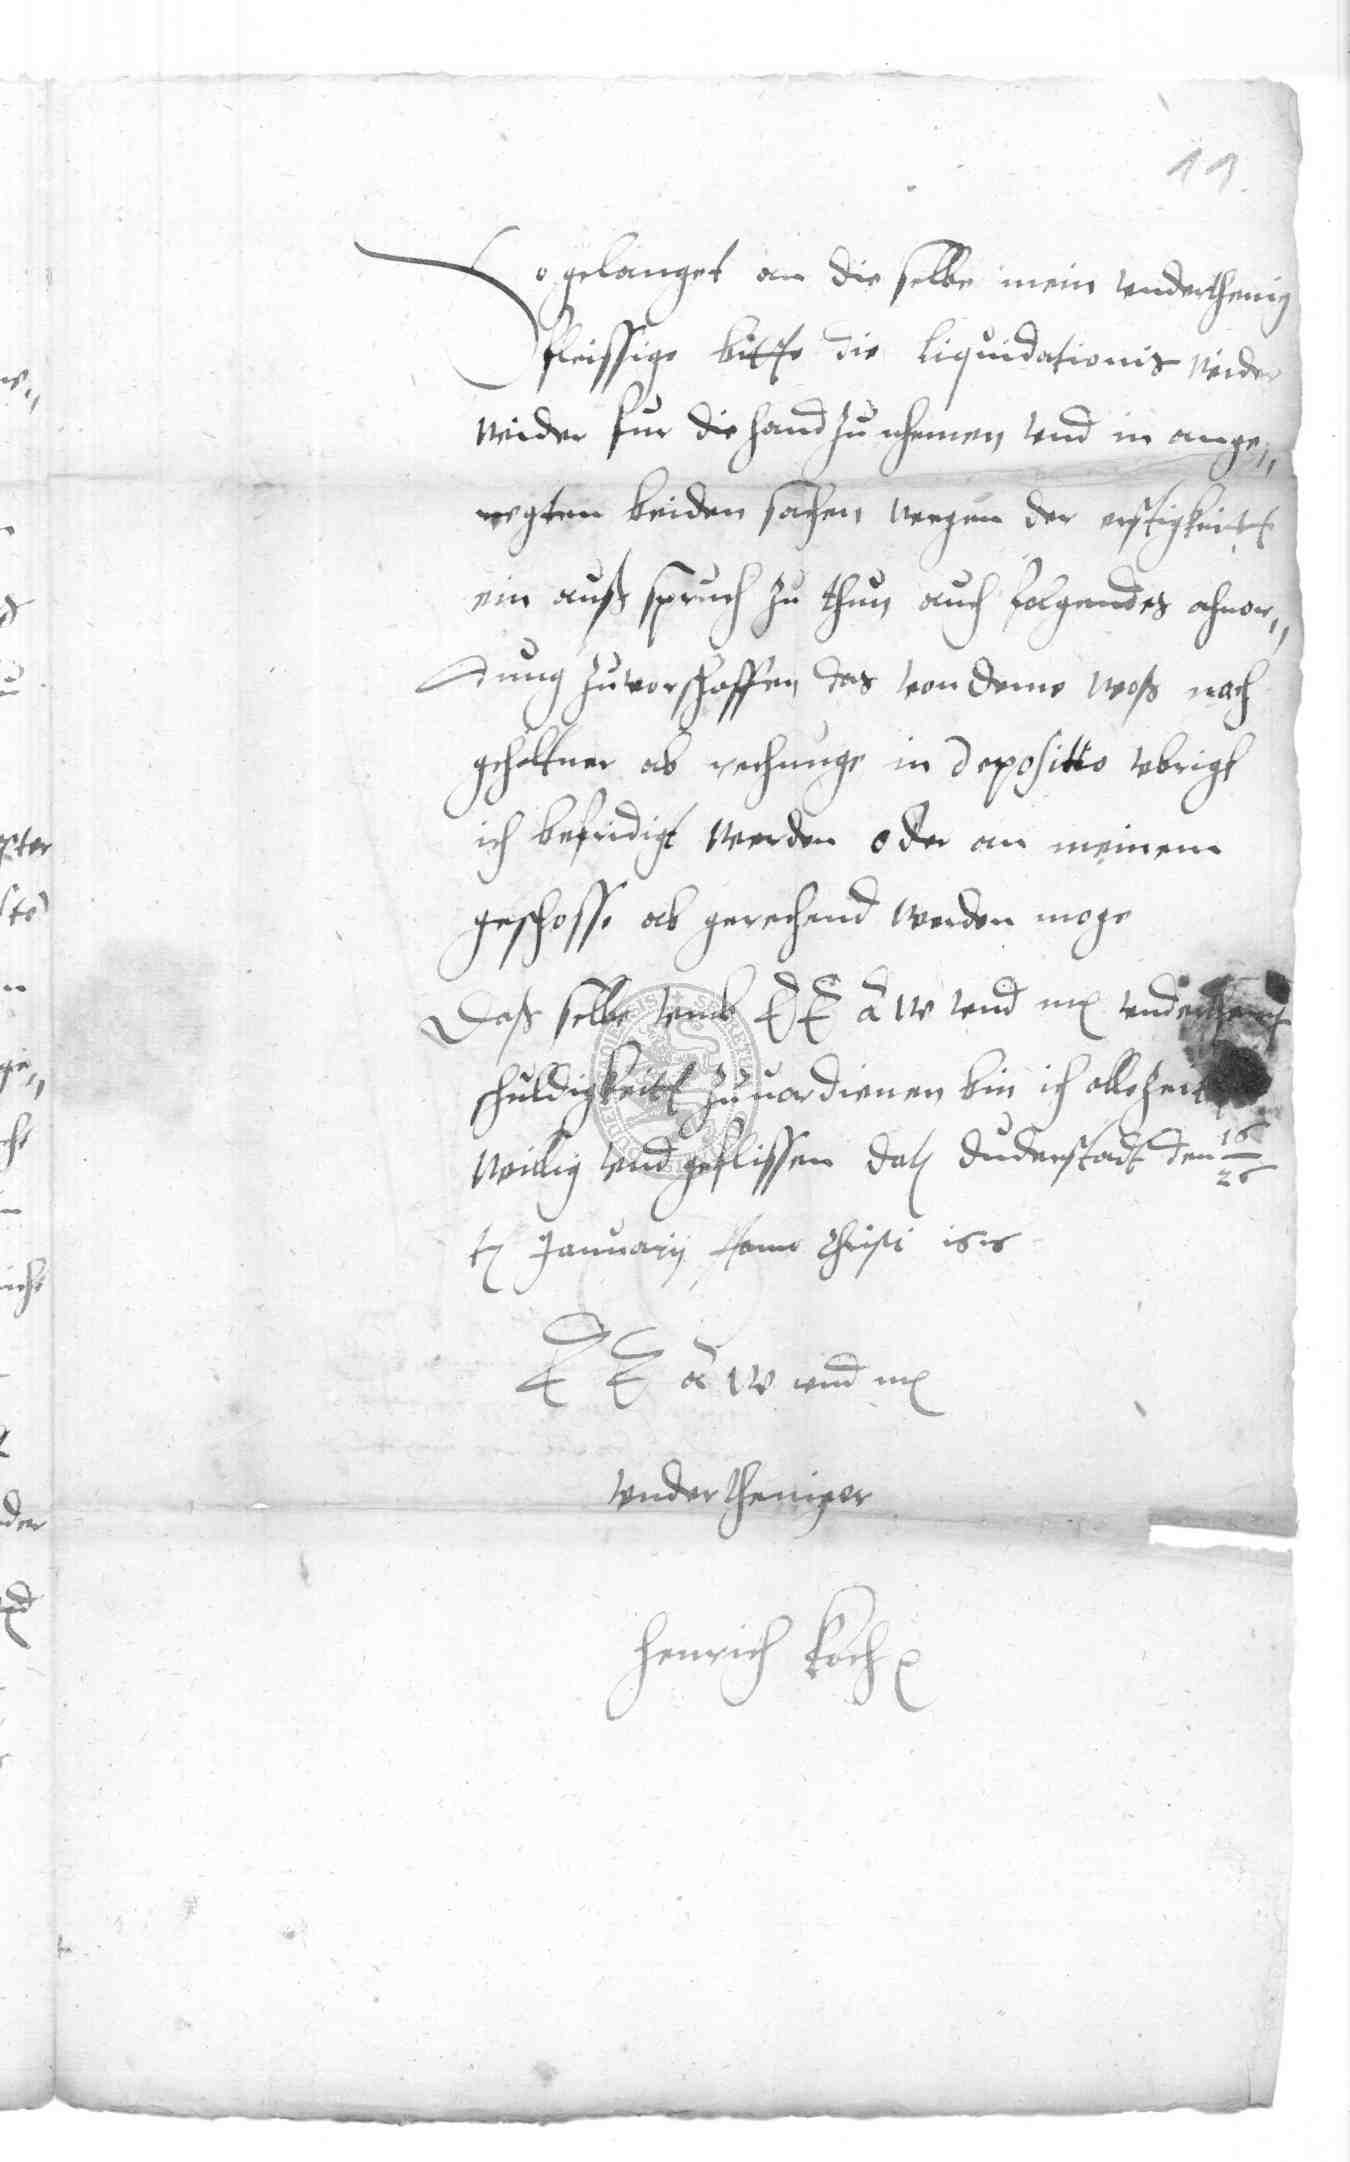 11.
So gelanget an die selbe mein vnderthenig
fleissige bitte die liquidationis wider
wider fur die hand zu nhemen vnd in ange,,
regten beiden sachen wegen der
ein auß spruch zu thun auch folgendes ahnor,,
dnung zuvorschaffen das von deme woß nach
gehaltner ab rechnunge in deposito vbrigk
ich befridigt werden oder an meinem
geschosse ab gerechend werden moge
Daß selbe vmb E E a w vnd
schuldigkeitt zuuordienen bin ich alle zeit
willig vnd geflissen Datum Duderstadt den 16/26
January Anno Christi
E E a w vnd
vndertheniger
Henrich Koch